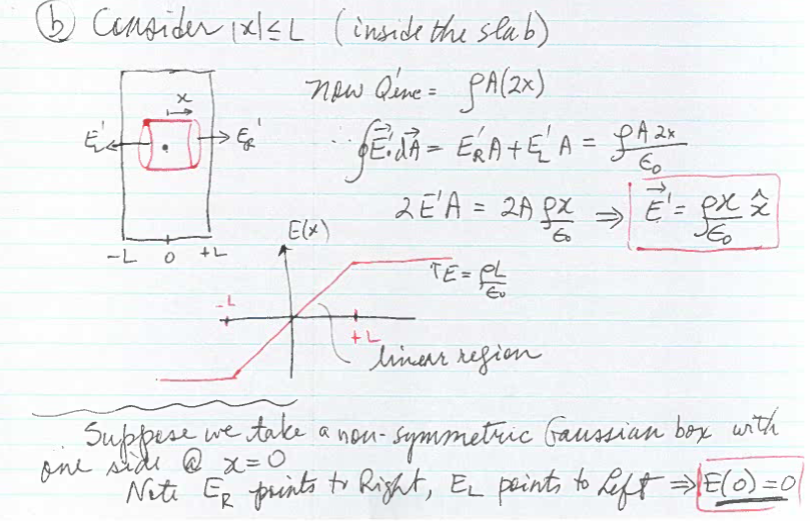 (b) Consider |x| ≤ L (inside the slab)
x
now Q'enc = ρA(2x)
E'L
E'R
∮E⃗'·dA⃗ = E'R A + E'L A = ρA2x/ε₀
2E'A = 2A ρx/ε₀ ⇒ E⃗' = ρx/ε₀ x̂
-L 0 +L
E(x)
↑E = ρL/ε₀
-L
+L
linear region
Suppose we take a non-symmetric Gaussian box with
one side @ x=0
Note ER points to Right, EL points to Left ⇒ E(0)=0